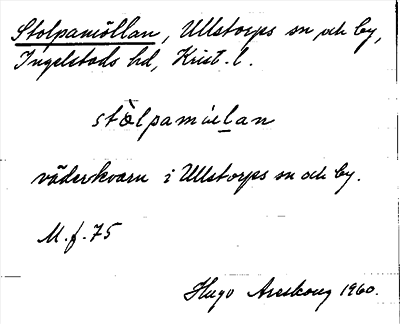 Stolpamöllan, Ullstorps sn och by,
Ingelstads hd, Krist. l.
stòlpamulan
väderkvarn i Ullstorps sn och by.
M.f. 75
Hugo Areskoug 1960.